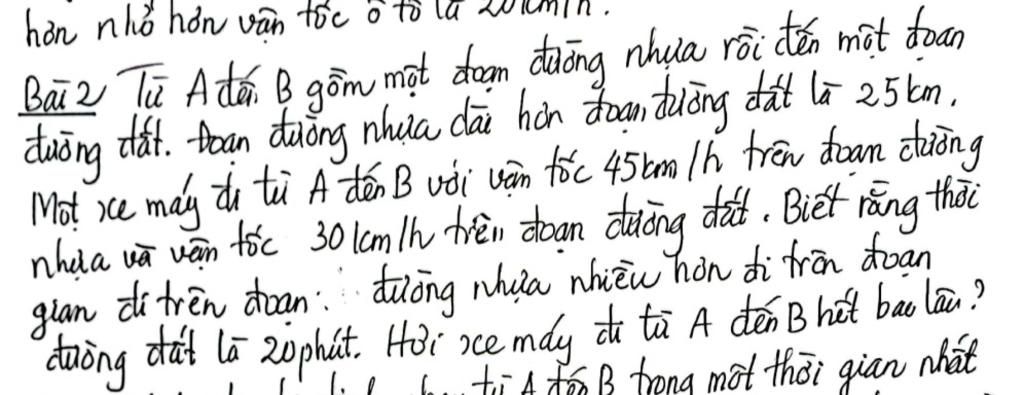 hơn nhỏ hơn vận tốc ô tô là 20km/h.
Bài 2 Từ A đến B gồm một đoạn đường nhựa rồi đến một đoạn
đường đất. Đoạn đường nhựa dài hơn đoạn đường đất là 25km.
Một xe máy đi từ A đến B với vận tốc 45km/h trên đoạn đường
nhựa và vận tốc 30km/h trên đoạn đường đất. Biết rằng thời
gian đi trên đoạn đường nhựa nhiều hơn đi trên đoạn
đường đất là 20phút. Hỏi xe máy đi từ A đến B hết bao lâu?
từ A đến B trong một thời gian nhất